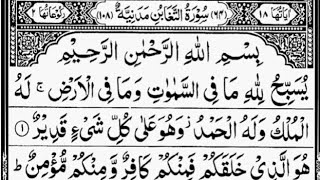 اٰيَاتُهَا ١٨ (٦٤) سُوْرَةُ التَّغَابُنِ مَدَنِيَّةٌ (١٠٨) رُكُوْعَاتُهَا ٢
بِسْمِ اللّٰهِ الرَّحْمٰنِ الرَّحِيْمِ
يُسَبِّحُ لِلّٰهِ مَا فِى السَّمٰوٰتِ وَمَا فِى الْاَرْضِ ۚ لَهُ
الْمُلْكُ وَلَهُ الْحَمْدُ ۡ وَهُوَ عَلٰى كُلِّ شَىْءٍ قَدِيْرٌ ﴿١﴾
هُوَ الَّذِىْ خَلَقَكُمْ فَمِنْكُمْ كَافِرٌ وَّمِنْكُمْ مُّؤْمِنٌ ؕ